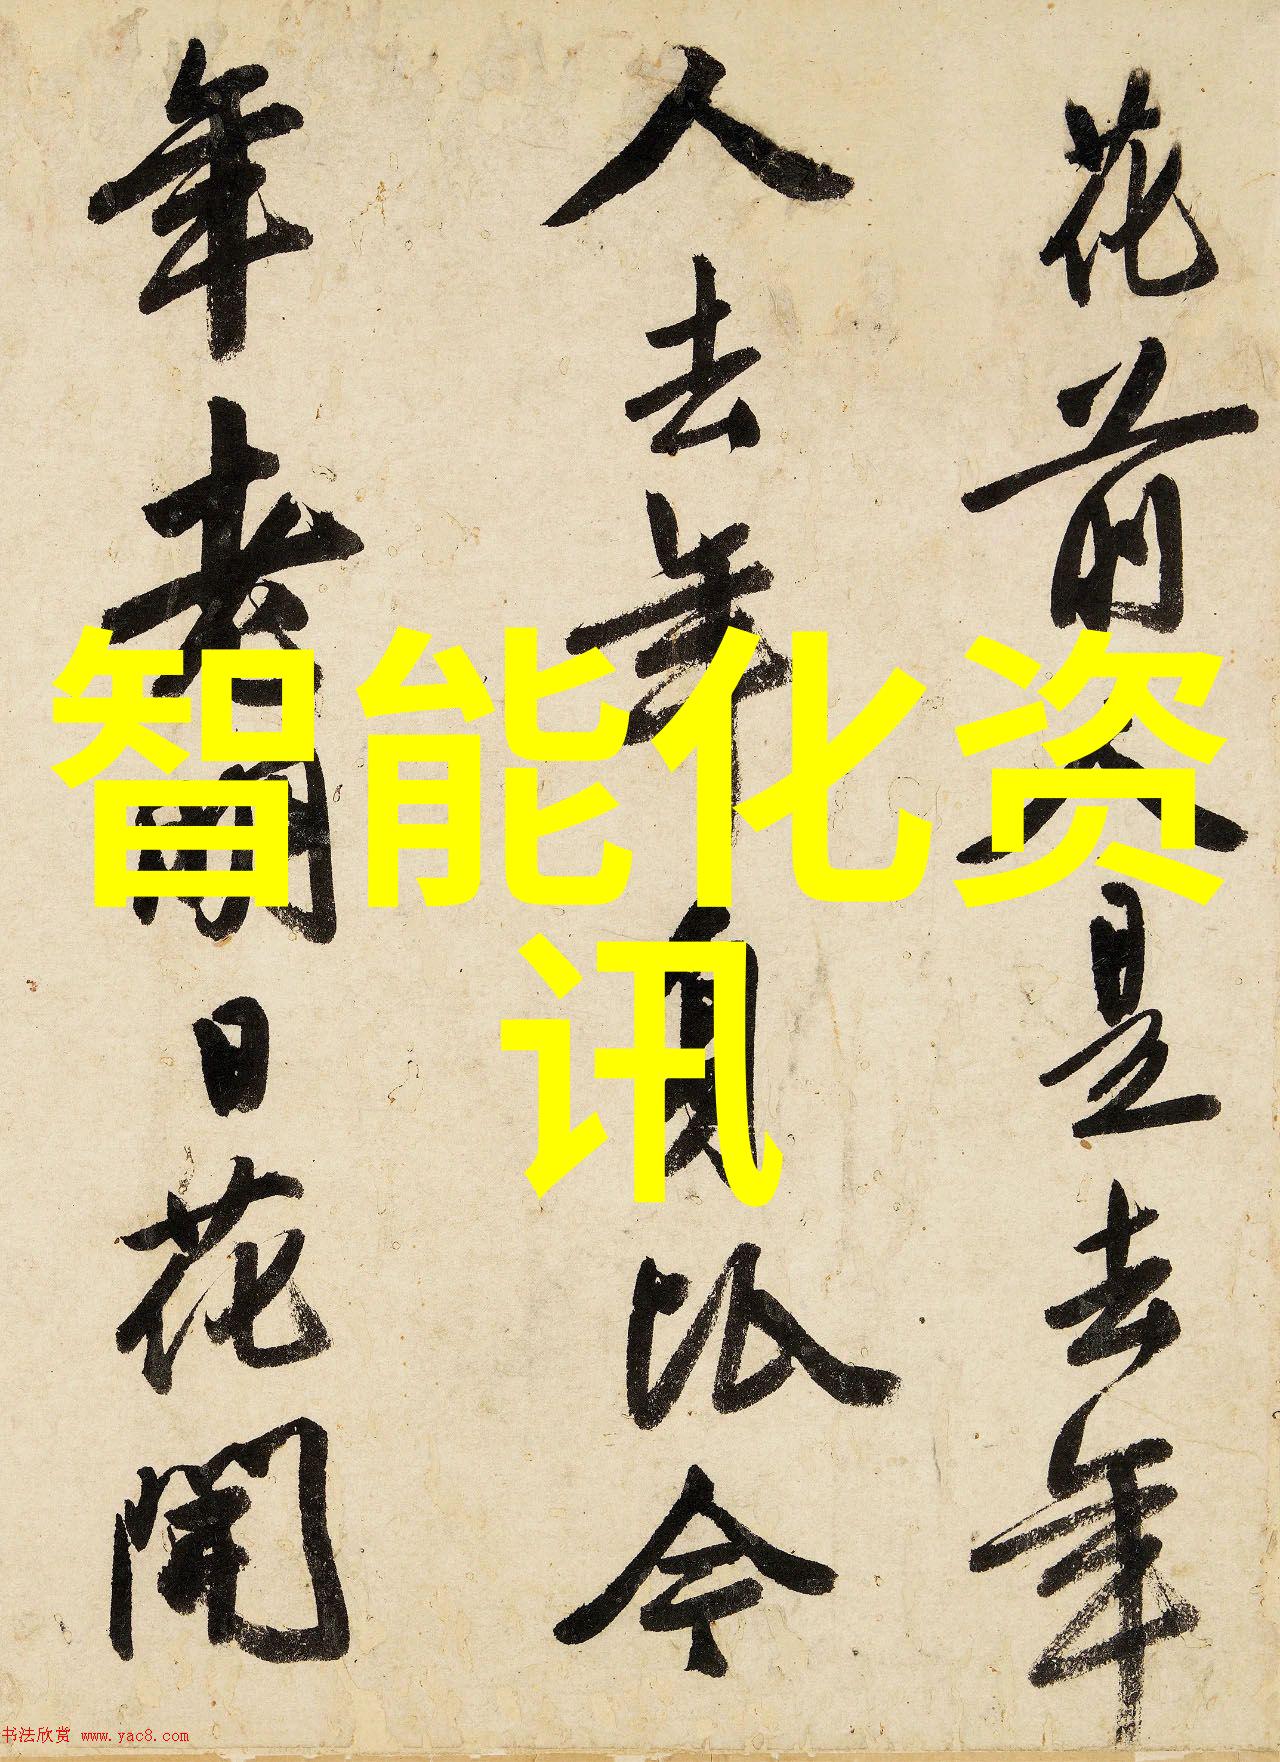 智能化资
讯
花前人是去年
人去年比今
年老明日花開
书法欣赏 www.yac8.com